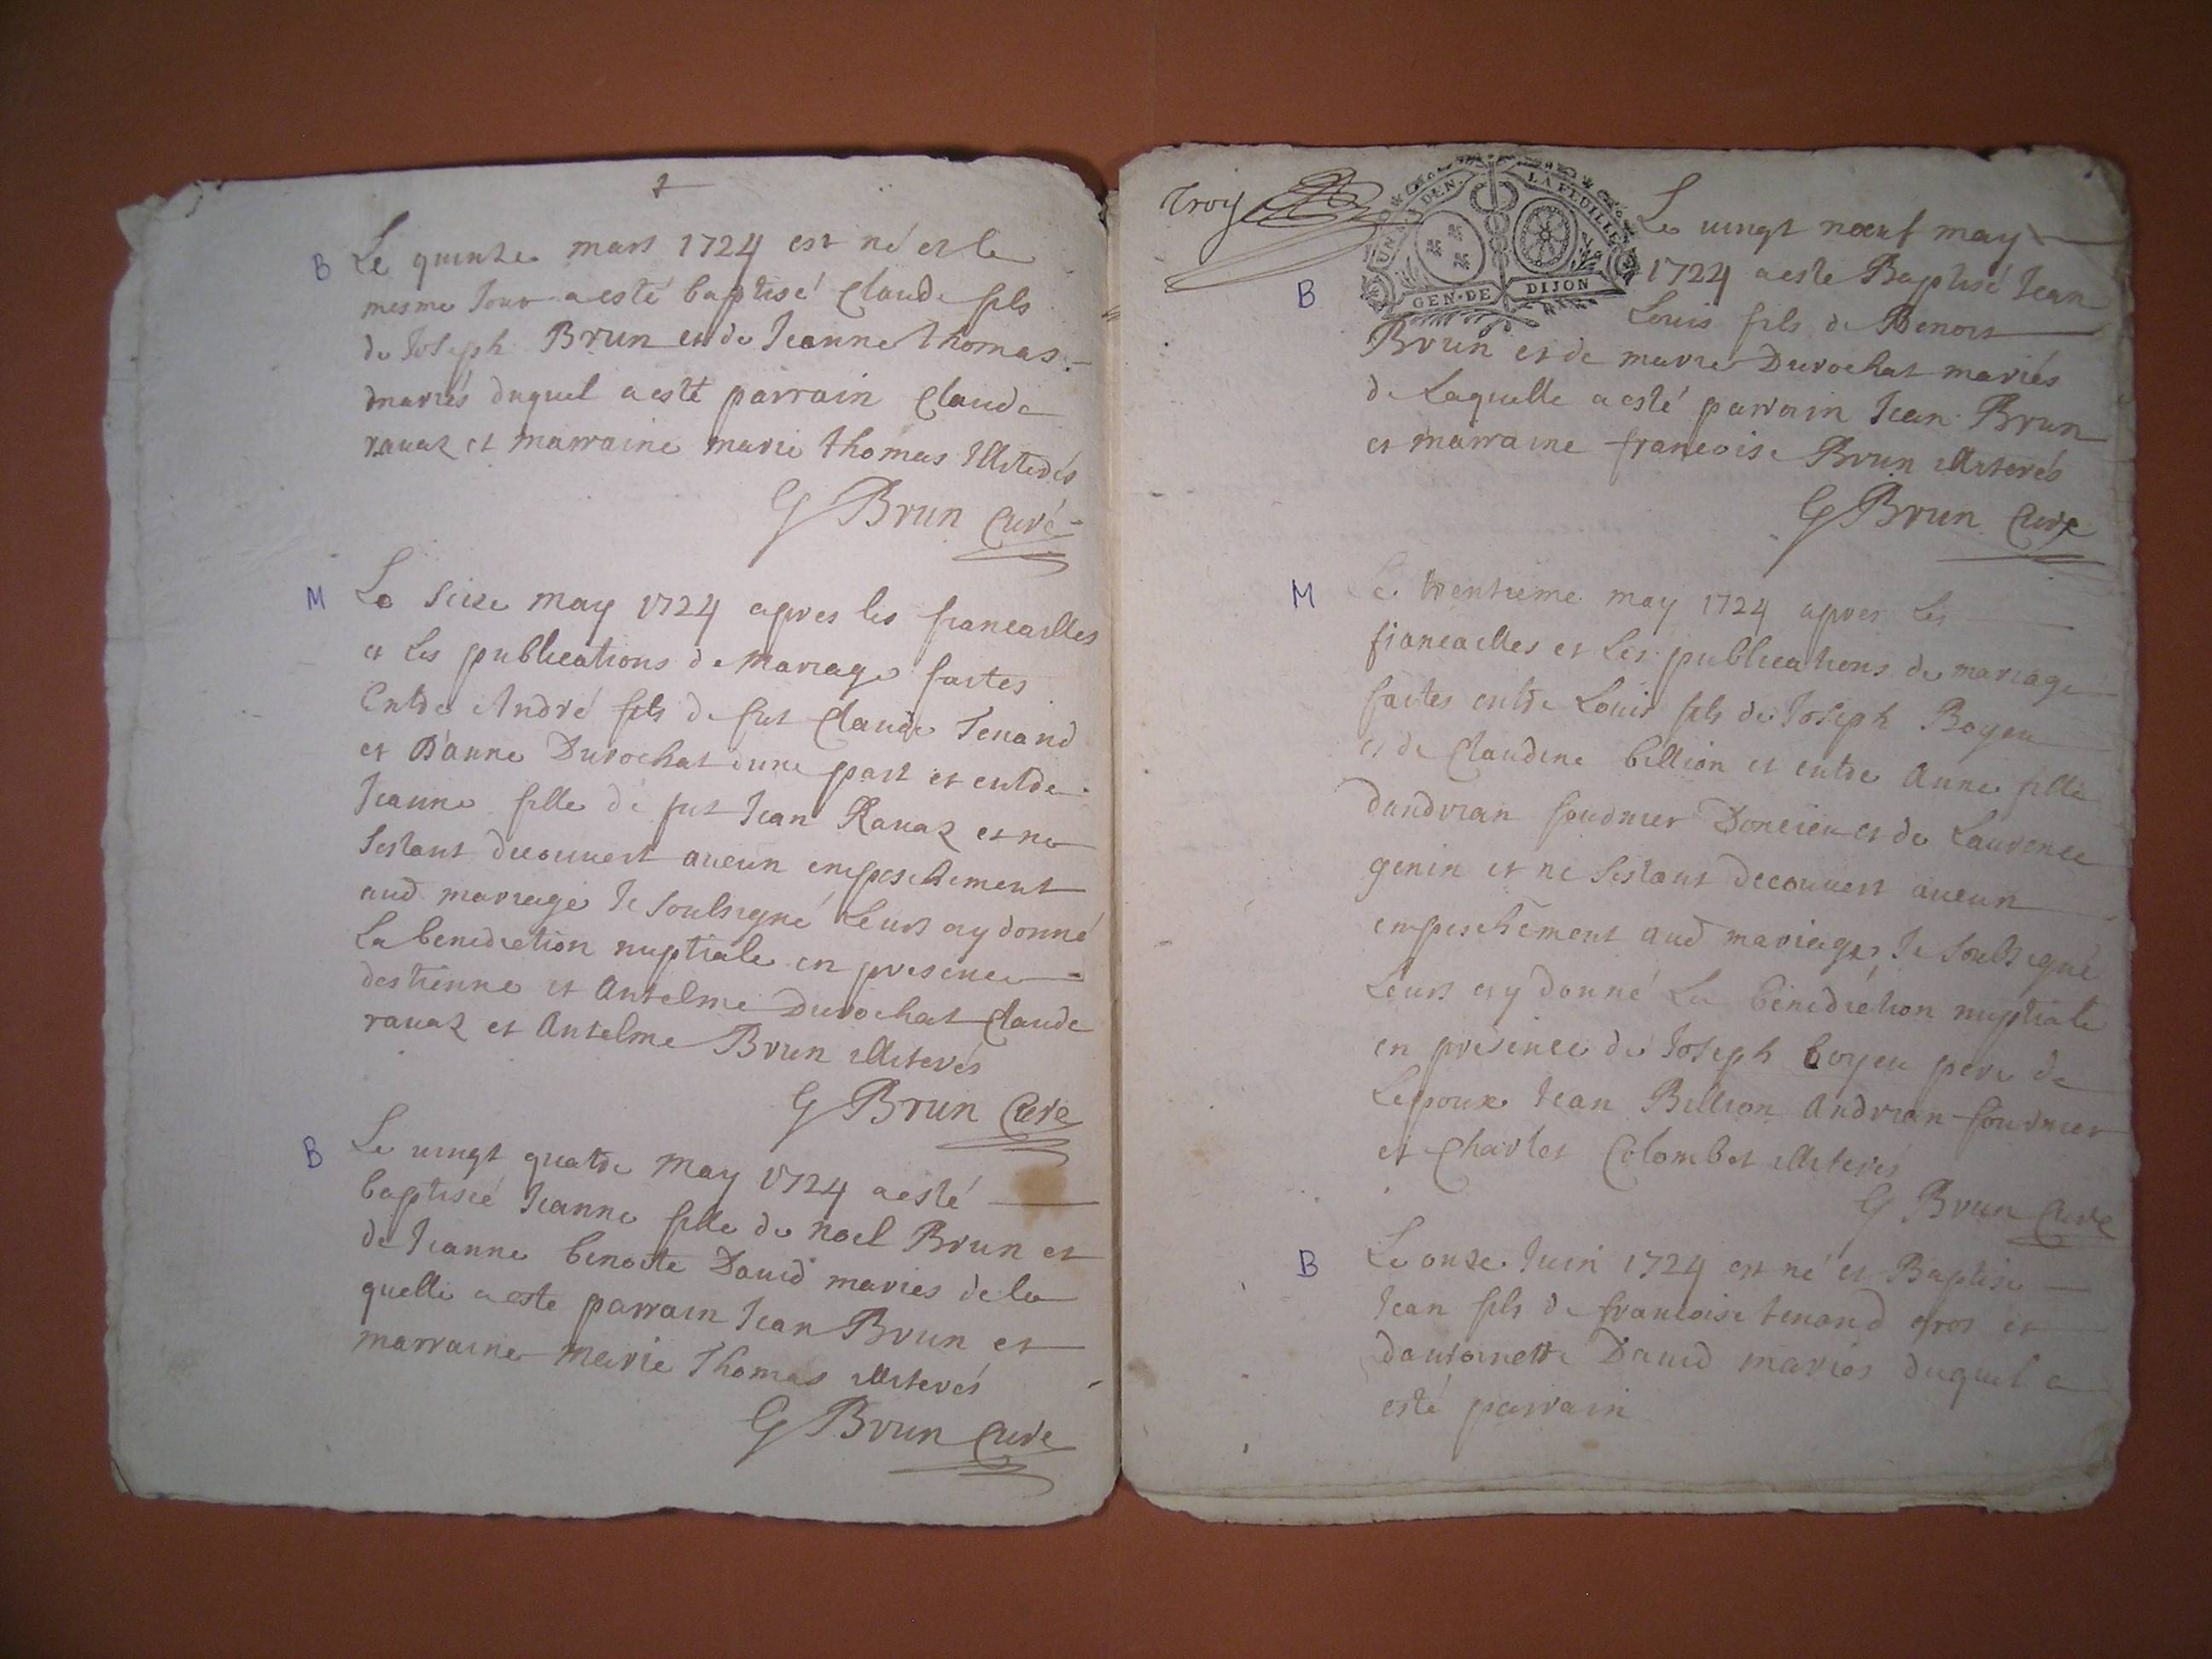 B
Le quinze mars 1724 est né et le
mesme Jour a esté baptisé Claude fils
de Joseph Brun et de Jeanne thomas
mariés duquel a esté parrain Claude
rauaz et marraine marie thomas Illiterés
G Brun Curé
M
Le seize may 1724 apres les fiancailles
et Les publications de mariage faites
Entre André fils de fut Claude Tenand
et D'anne Durochat dune part et entre
Jeanne fille de fut Jean Rauaz et ne
Sestant decouuert aucun empeschement
aud mariage Je Soubsigné Leurs ay donné
La benediction nuptiale en presence
destienne et Antelme Durochat Claude
rauaz et Antelme Brun illiterés
G Brun Cure
B
Le uingt quatre may 1724 a esté
baptiseé Jeanne fille de noel Brun et
de Jeanne benoite Dauid maries de la
quelle a este parrain Jean Brun et
marraine marie Thomas illiterés
G Brun Cure
troy
UN DEN. LA FEUILLE
GEN·DE DIJON
B
Le uingt noeuf may
1724 a este Baptisé Jean
Louis fils de Benoit
Brun et de marie Durochat mariés
de Laquelle a esté parrain Jean Brun
et marraine francoise Brun illiterés
G Brun Cure
M
Le trentieme may 1724 apres Les
fiancailles et Les publications de mariage
faites entre Louis fils de Joseph Boyeu
et de Claudine billion et entre Anne fille
dandrian fournier Doncieu et de Laurence
genin et ne Sestant decouuert aucun
empeschement aud mariage Je Soubsigné
Leurs ay donné La benediction nuptiale
en presence de Joseph boyeu pere de
Lepoux Jean Billion Andrian fournier
et Charles Colombet illiterés
G Brun Cure
B
Le onze Juin 1724 est né et Baptise
Jean fils de francoise tenand gros et
dantoinette Dauid mariés duquel a
esté parrain